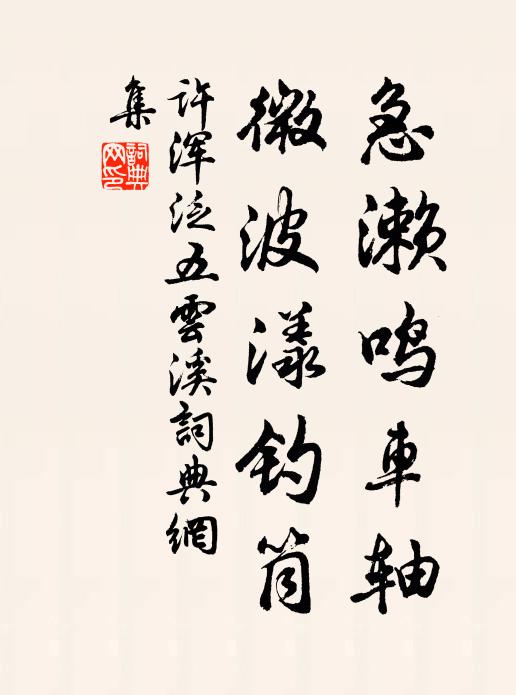 急濑鸣車轴
微波漾钓筒
许浑泛五雲溪詞典網
集
詞典
网印